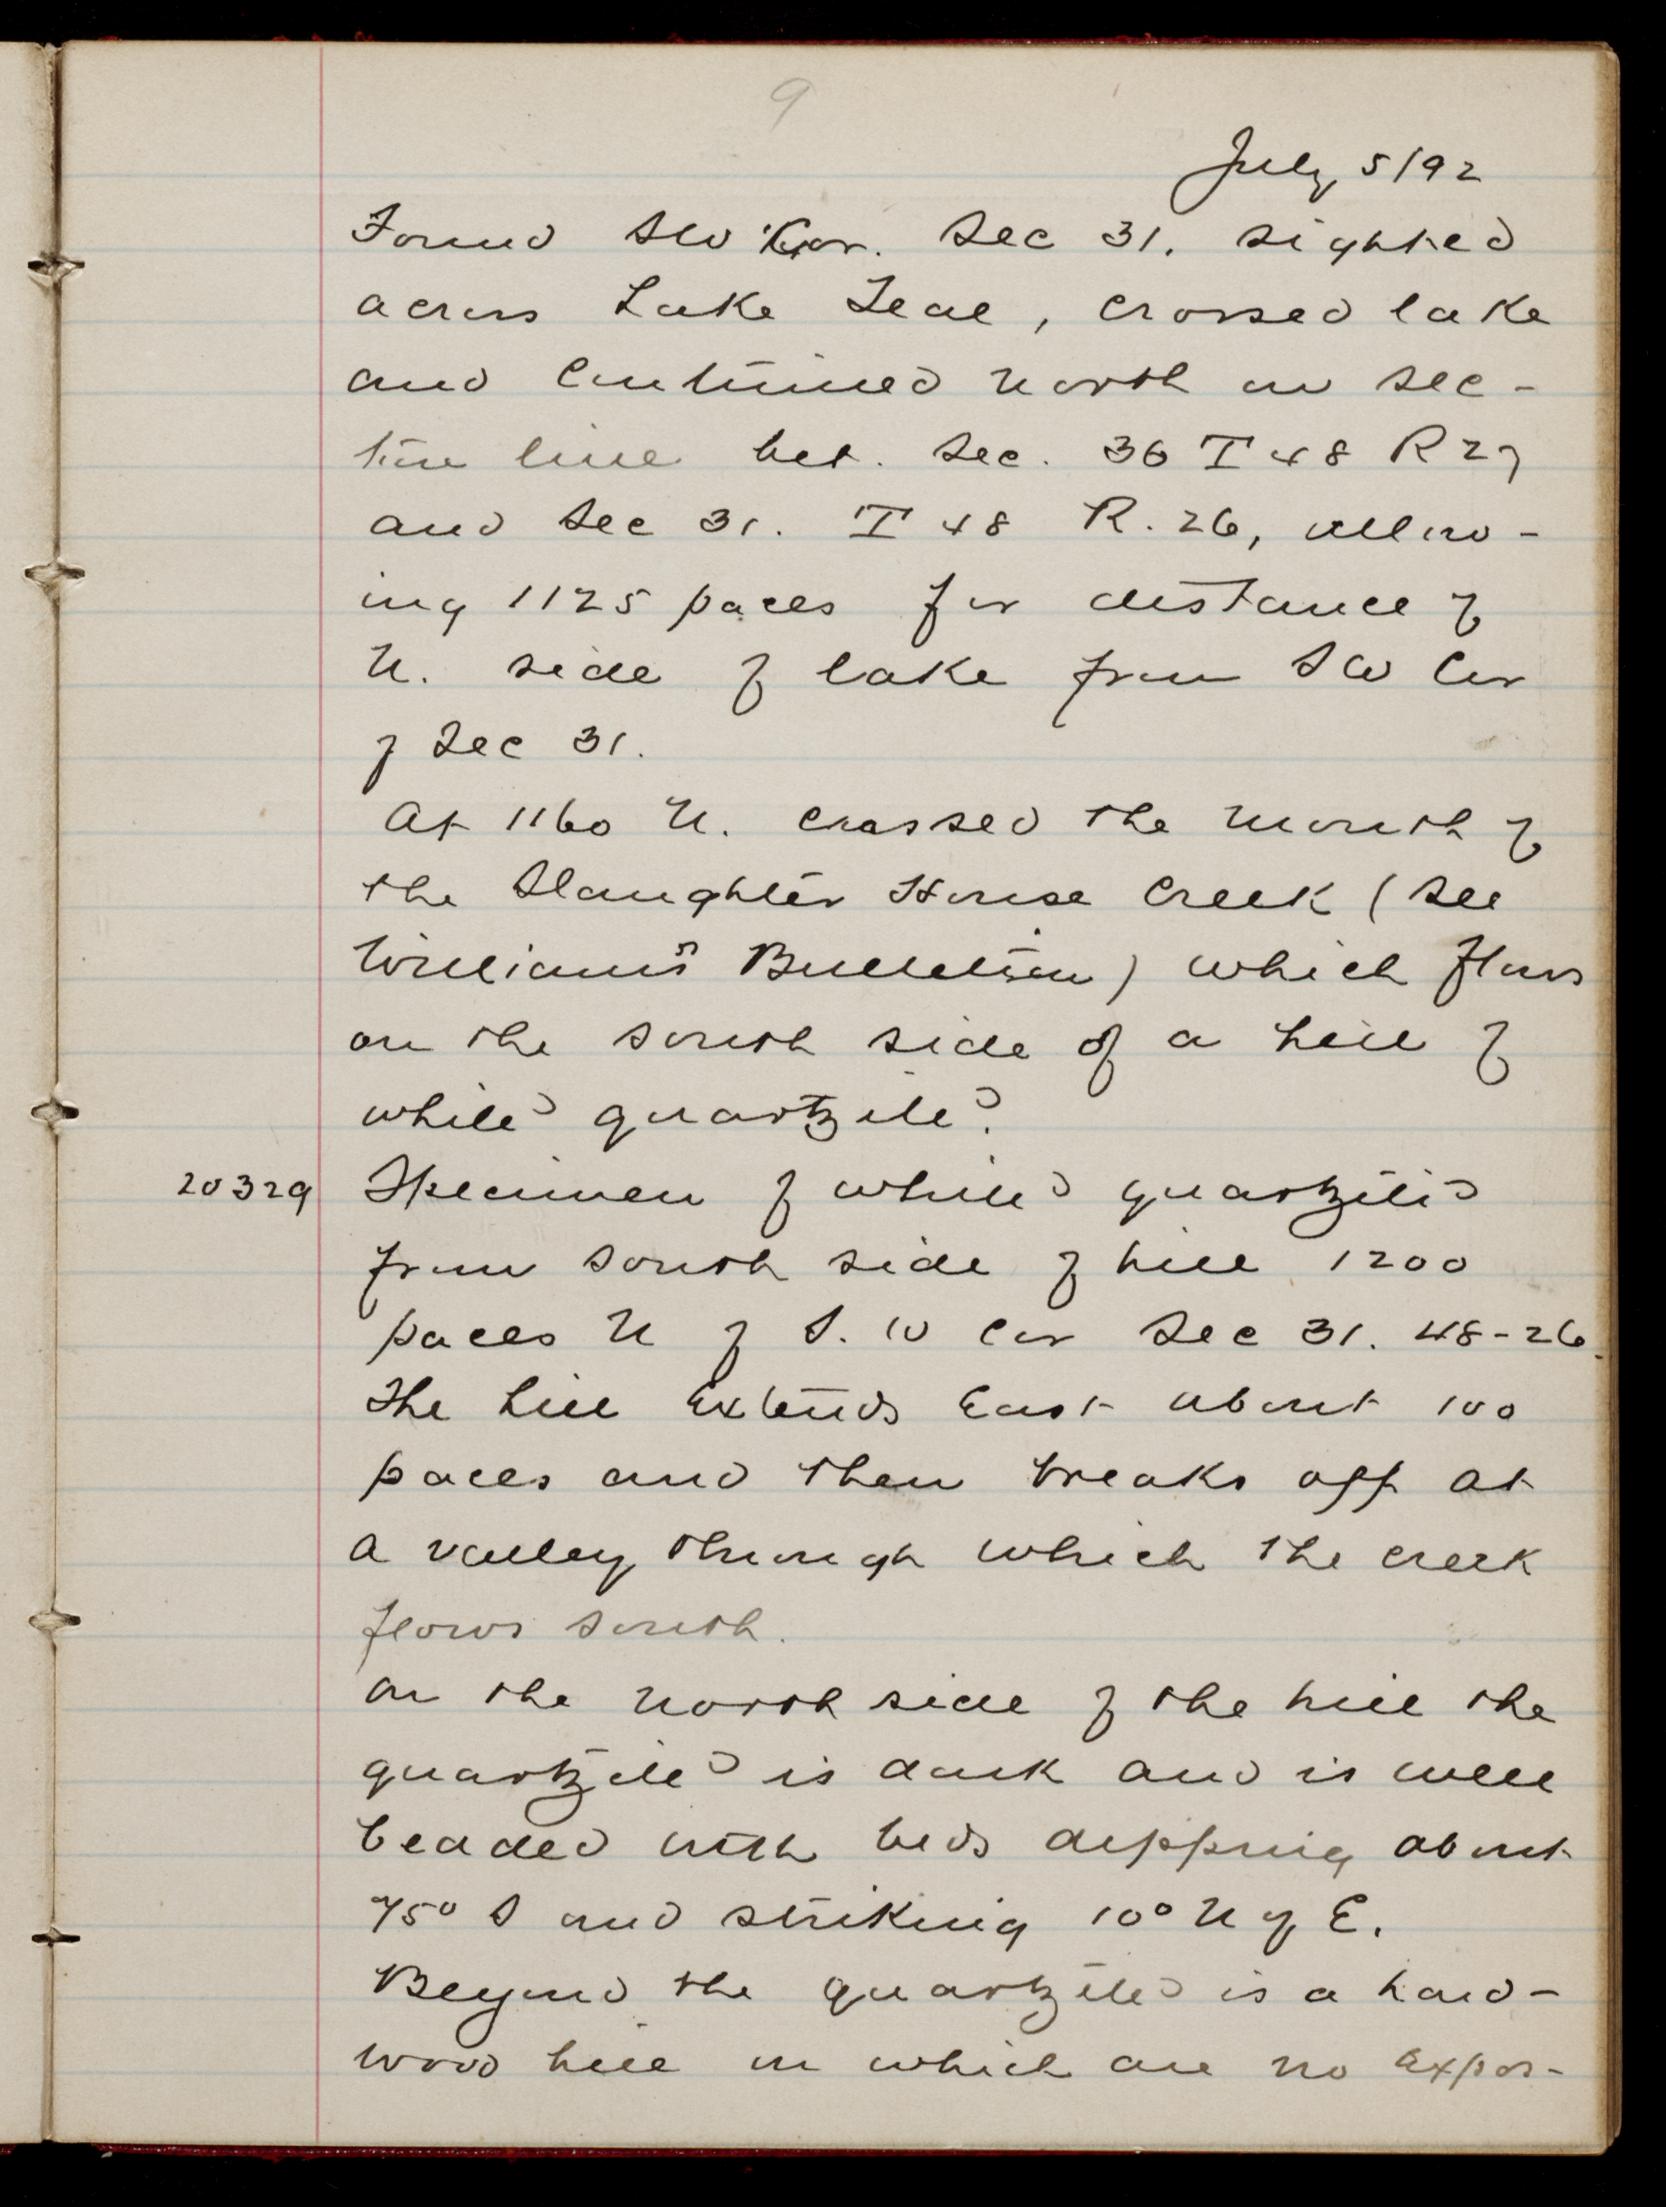 9
July 5/92
Found SW Cor. Sec 31. Sighted
across Lake Teal, crossed lake
and continued north on sec-
tion line bet. Sec. 36 T 48 R 27
and Sec 31. T 48 R. 26, allow-
ing 1125 paces for distance of
N. side of lake from SW Cor
of Sec 31.
At 1160 N. crossed the mouth of
the Slaughter House Creek (see
William's Bulletin) which flows
on the south side of a hill of
white quartzite.
20329 Specimen of white quartzite
from south side of hill 1200
paces N of S. W Cor Sec 31. 48-26.
The hill extends East about 100
paces and then breaks off at
a valley through which the creek
flows south.
On the north side of the hill the
quartzite is dark and is well
beaded with beds dipping about
75° S and striking 10° N of E.
Beyond the quartzite is a hard-
wood hill on which are no expos-